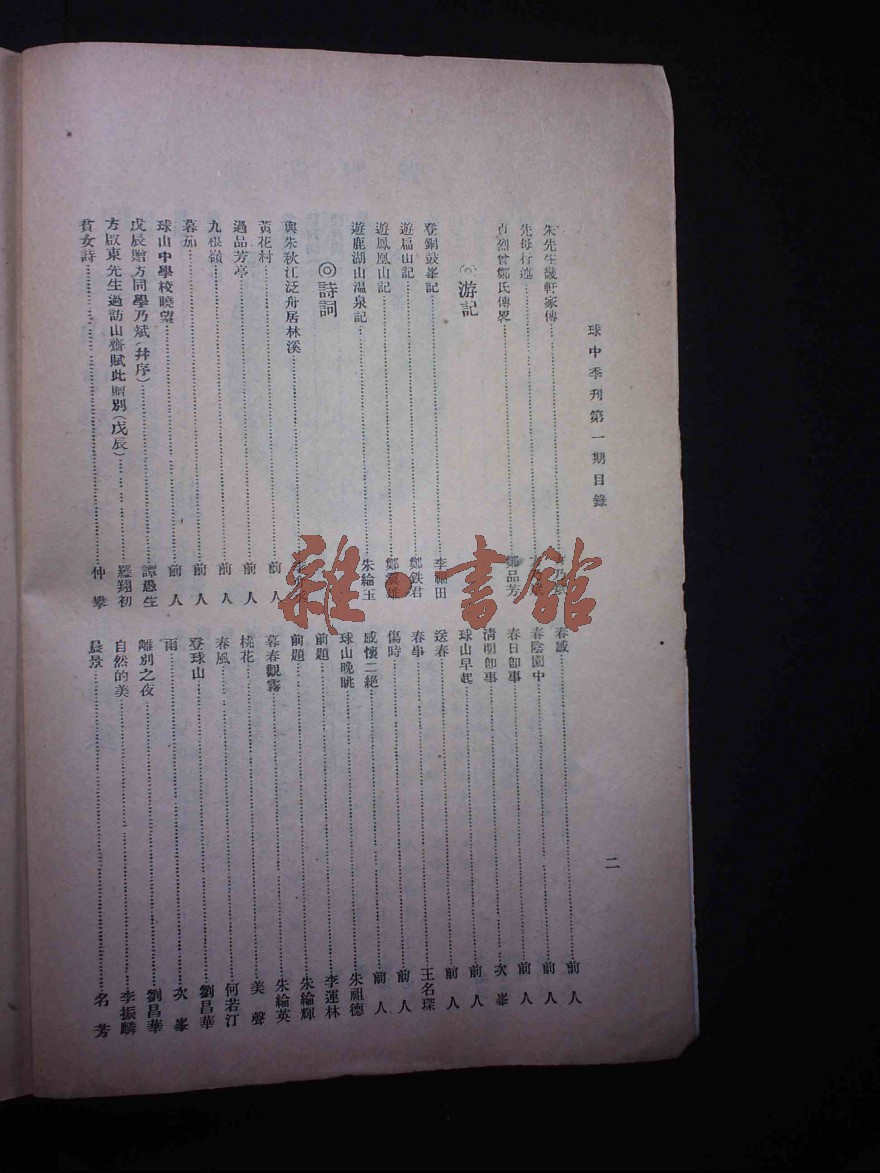 球中季刊第一期目錄
二
朱先生畿軒家傳
先母行述
貞烈曾鄭氏傳畧……鄭品芳
◎游記
登銅鼓峯記……李 田
遊扁山記……鄭鉄君
遊鳳凰山記……鄭
遊鹿湖山温泉記……朱綸玉
◎詩詞
與朱秋江泛舟居林溪
黃花村……前人
過品芳亭……前人
九根嶺……前人
暮茄……前人
球山中學校曉望……前人
戊辰贈方同學乃斌(幷序)……譚愚生
方啟東先生過訪山齋賦此贈別(戊辰)……羅翔初
貧女詩……仲攀
春感……前人
春陰園中……前人
春日卽事……前人
清明卽事……次峯
球山早起……前人
送春……前人
春事……王名琛
傷時……前人
感懷二絕……前人
球山晚眺……朱祖德
前題……李運林
前題……朱綸輝
暮春觀霧……朱綸英
桃花……美聲
春風……何若汀
登球山……劉昌華
雨……次峯
離別之夜……劉昌華
自然的美……李振麟
晨景……名芳
雜書館